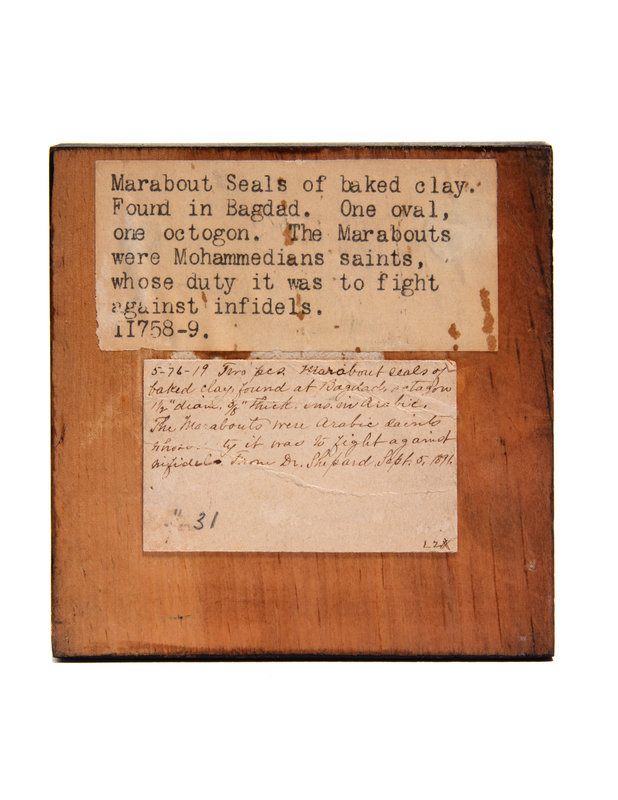 Marabout Seals of baked clay.
Found in Bagdad. One oval,
one octogon. The Marabouts
were Mohammedians saints,
whose duty it was to fight
against infidels.
11758-9.
5-76-19 Two pcs Marabout seals of
baked clay, found at Bagdad, octagon
1½" diam. ⅜" thick. ins. in Arabic.
The Marabouts were Arabic saints
whose ty it was to fight against
infidels From Dr. Shepard, Sept. 5, 1891.
31